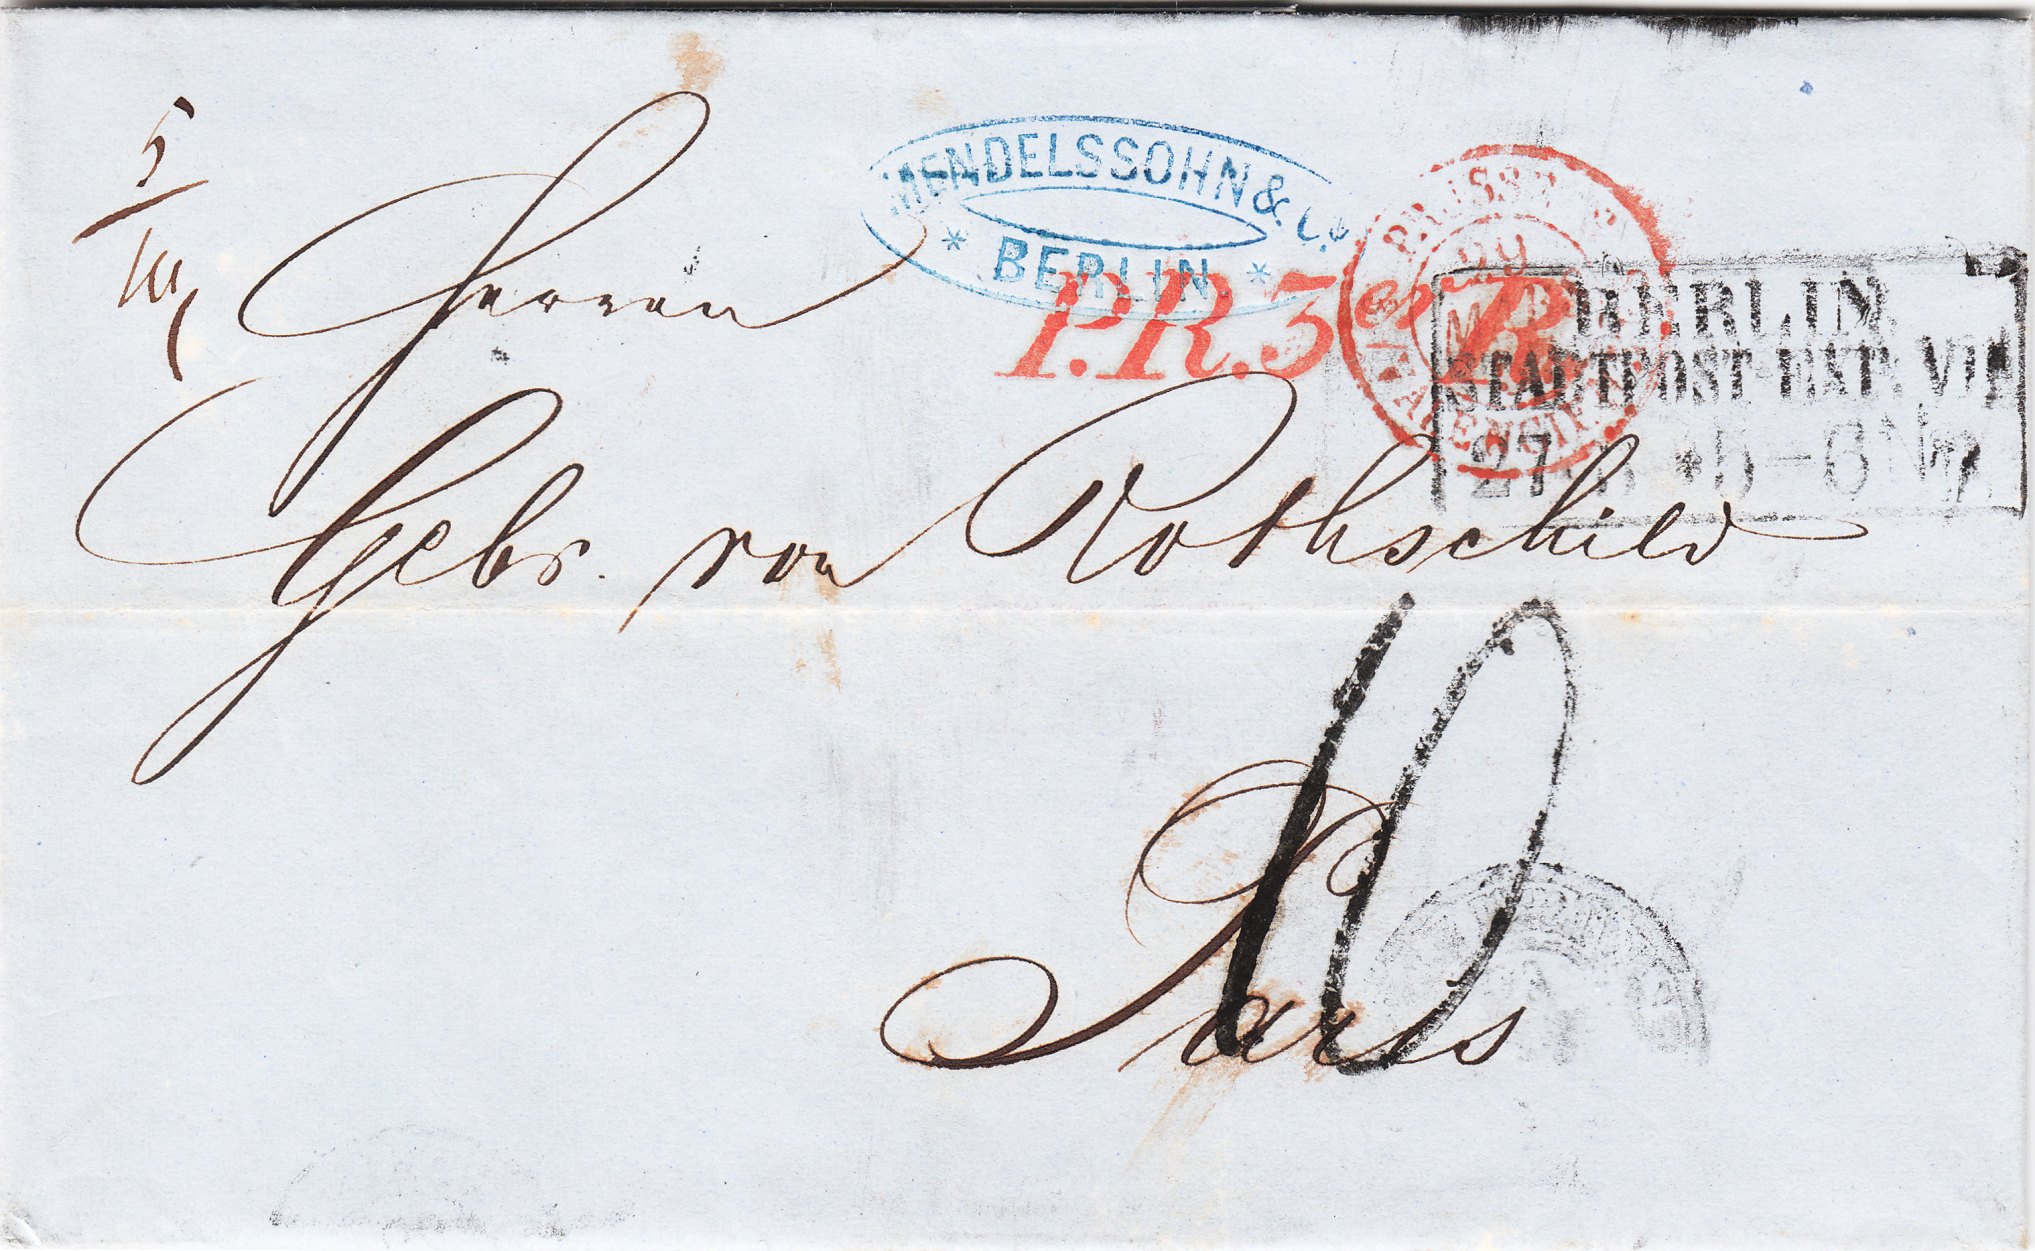 5
MENDELSSOHN & Co
* BERLIN. *
P.R. 3e R.
PRUSSE
29
VALENCIENNES
BERLIN
STADTPOST-EXP. VII
27 * 5-6N
Herren
Gebr. von Rothschild
10
Paris